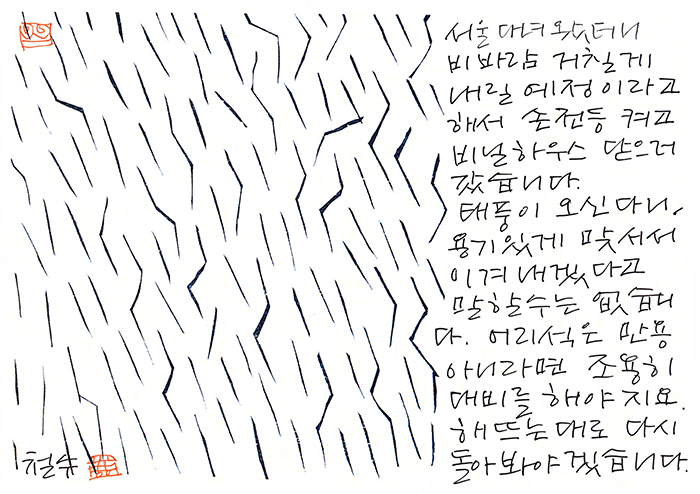 서울 다녀 왔더니
비바람 거칠게
내릴 예정이라고
해서 손전등 켜고
비닐하우스 닫으러
갔습니다.
태풍이 오신다니,
용기있게 맞서서
이겨내겠다고
말할수는 없습니
다. 어리석은 만용
아니라면 조용히
대비를 해야지요.
해뜨는대로 다시
돌아봐야겠습니다.
철수